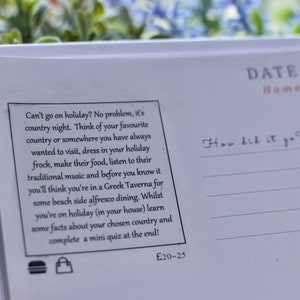 DATE
Home
Can't go on holiday? No problem, it's
country night. Think of your favourite
country or somewhere you have always
wanted to visit, dress in your holiday
frock, make their food, listen to their
traditional music and before you know it
you'll think you're in a Greek Taverna for
some beach side alfresco dining. Whilst
you're on holiday (in your house) learn
some facts about your chosen country and
complete a mini quiz at the end!
£20-25
How did it go